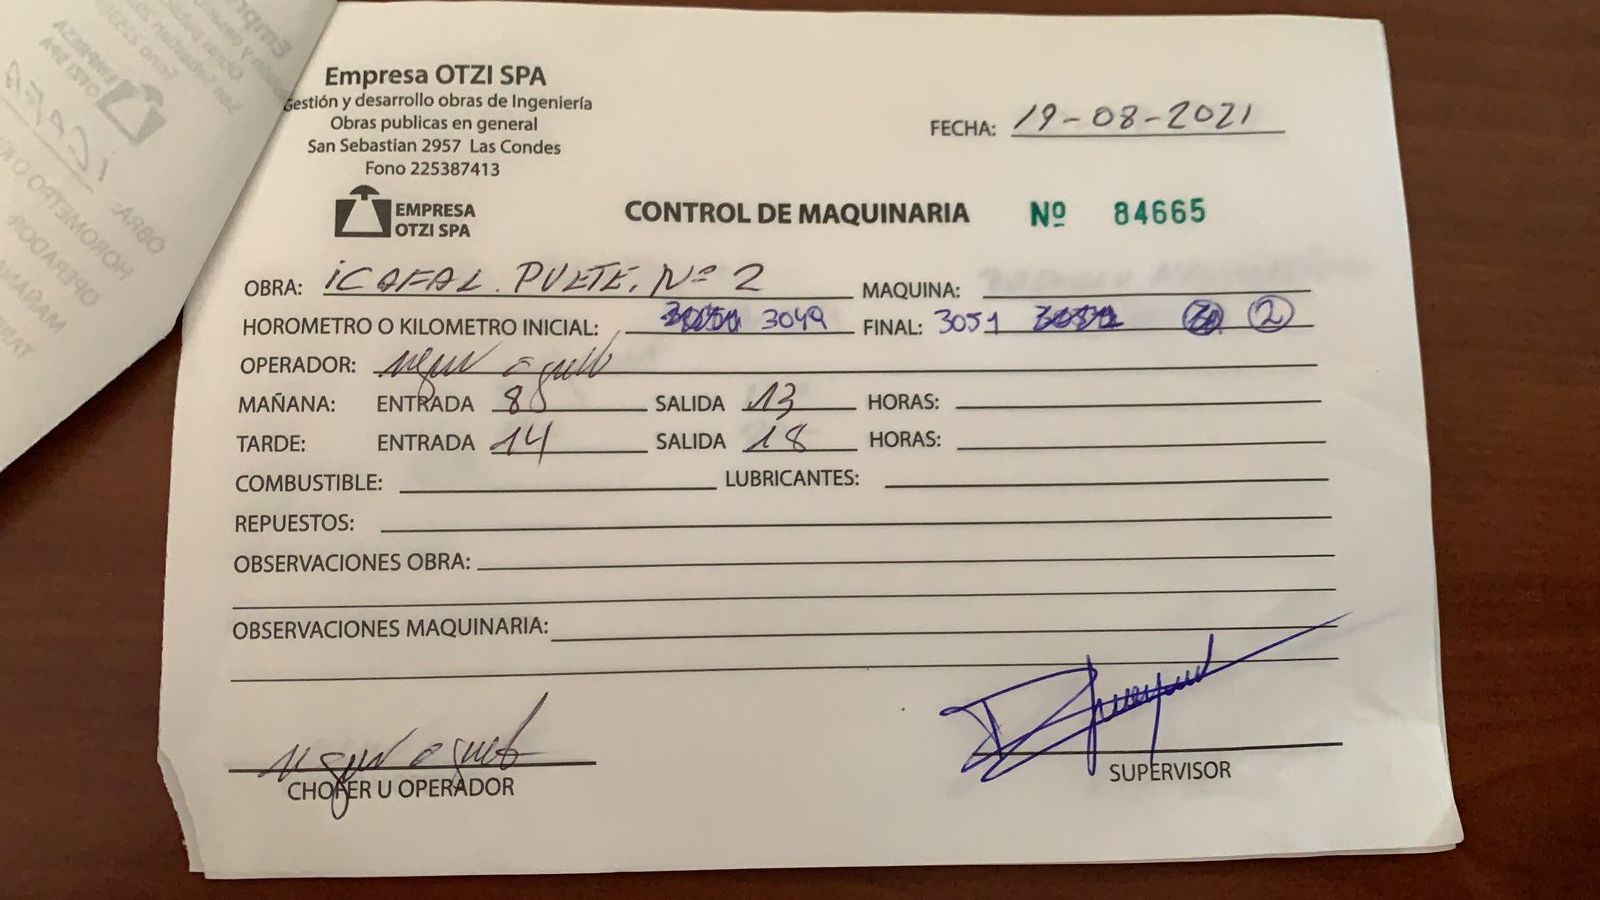 Empresa OTZI SPA
Gestión y desarrollo obras de Ingeniería
Obras publicas en general
San Sebastian 2957 Las Condes
Fono 225387413
EMPRESA
OTZI SPA
FECHA: 19-08-2021
CONTROL DE MAQUINARIA Nº 84665
OBRA: iCAFAL. PUETE. Nº 2 MAQUINA:
HOROMETRO O KILOMETRO INICIAL: 3049 FINAL: 3051 2
OPERADOR:
MAÑANA: ENTRADA 8 SALIDA 13 HORAS:
TARDE: ENTRADA 14 SALIDA 18 HORAS:
COMBUSTIBLE: LUBRICANTES:
REPUESTOS:
OBSERVACIONES OBRA:
OBSERVACIONES MAQUINARIA:
CHOFER U OPERADOR
SUPERVISOR